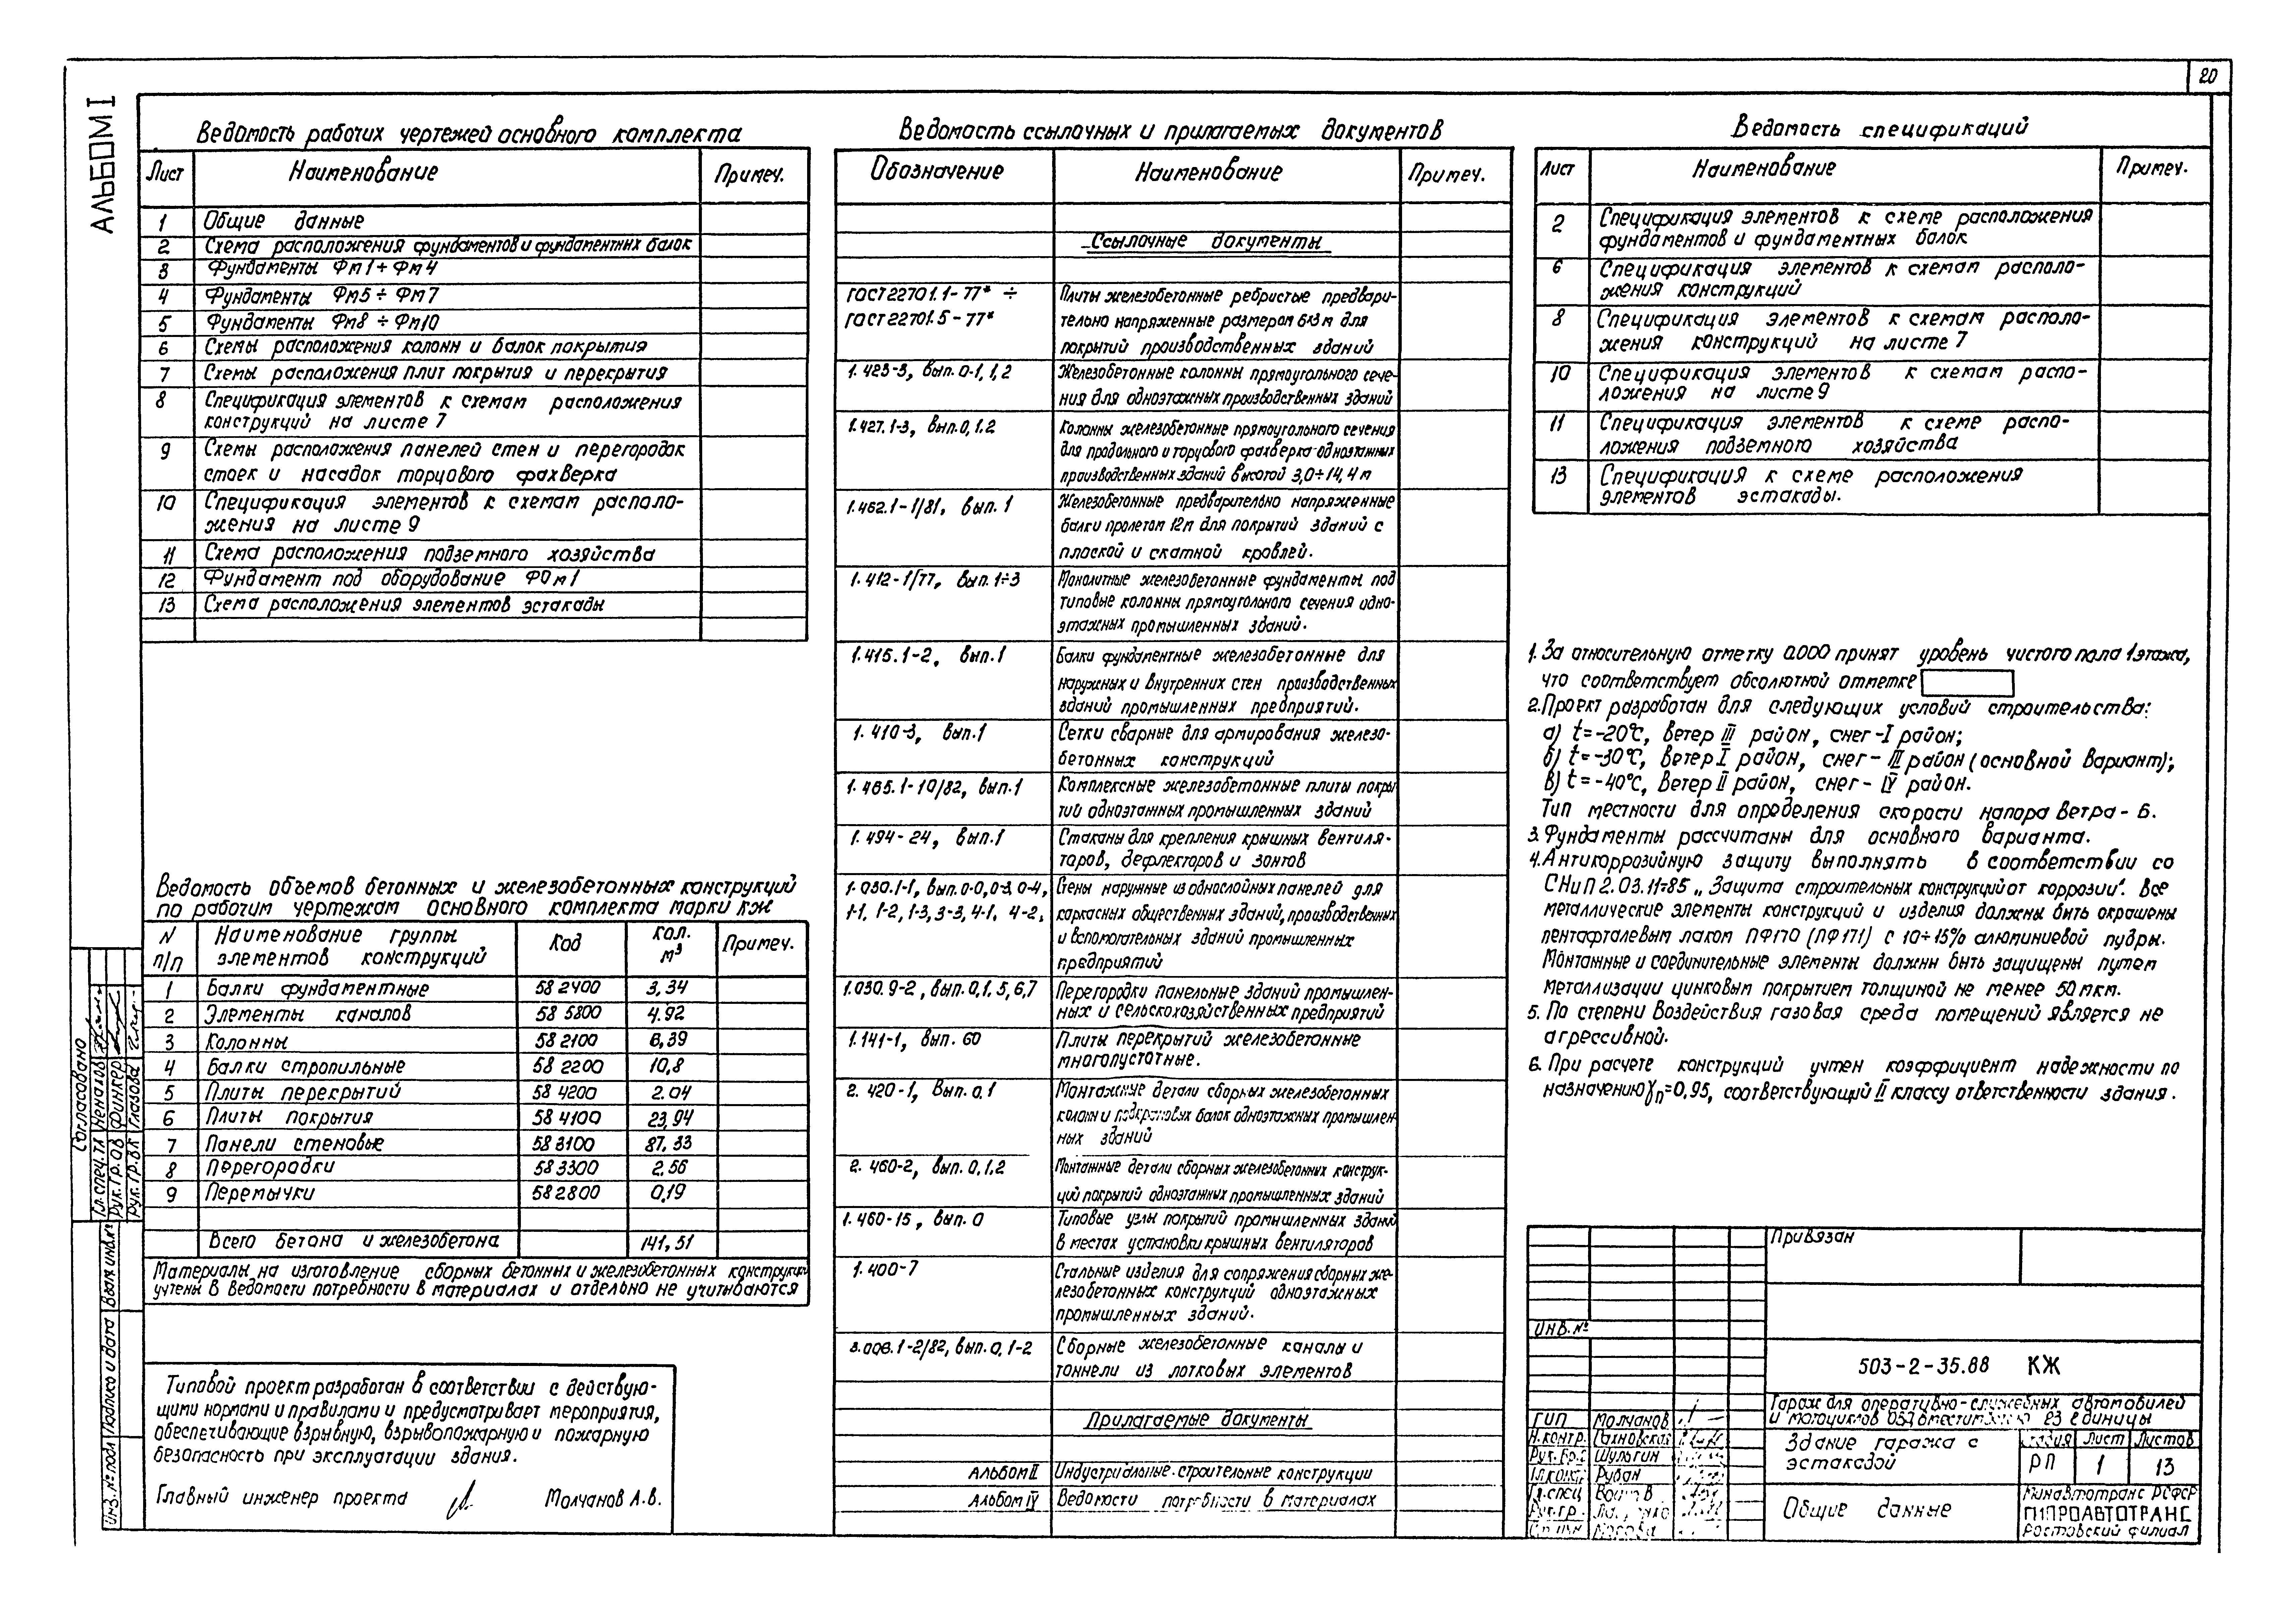 20
АЛЬБОМ I
Ведомость рабочих чертежей основного комплекта
Лист Наименование Примеч.
1 Общие данные
2 Схема расположения фундаментов и фундаментных балок
3 Фундаменты Фм1÷Фм4
4 Фундаменты Фм5÷Фм7
5 Фундаменты Фм8÷Фм10
6 Схемы расположения колонн и балок покрытия
7 Схемы расположения плит покрытия и перекрытия
8 Спецификация элементов к схемам расположения
конструкций на листе 7
9 Схемы расположения панелей стен и перегородок
стоек и насадок торцового фахверка
10 Спецификация элементов к схемам располо-
жения на листе 9
11 Схема расположения подземного хозяйства
12 Фундамент под оборудование ФОм1
13 Схема расположения элементов эстакады
Ведомость объемов бетонных и железобетонных конструкций
по рабочим чертежам основного комплекта марки КЖ
N п/п Наименование группы элементов конструкций Код Кол. м³ Примеч.
1 Балки фундаментные 582400 3,34
2 Элементы каналов 585800 4.92
3 Колонны 582100 6,39
4 Балки стропильные 582200 10,8
5 Плиты перекрытий 584200 2.04
6 Плиты покрытия 584100 23,94
7 Панели стеновые 583100 87,33
8 Перегородки 583300 2.56
9 Перемычки 582800 0,19
Всего бетона и железобетона 141,51
Материалы на изготовление сборных бетонных и железобетонных конструкций
учтены в ведомости потребности в материалах и отдельно не учитываются
Типовой проект разработан в соответствии с действую-
щими нормами и правилами и предусматривает мероприятия,
обеспечивающие взрывную, взрывопожарную и пожарную
безопасность при эксплуатации здания.
Главный инженер проекта Молчанов А.В.
Согласовано
Гл.спец.тл Ненахов
Рук.гр.ОВ Финкер
Рук.гр.ВК Глазова
Инв.№подл Подпись и дата Взам.инв.№
Ведомость ссылочных и прилагаемых документов
Обозначение Наименование Примеч.
Ссылочные документы
ГОСТ 22701.1-77* ÷ Плиты железобетонные ребристые предвари-
ГОСТ 22701.5-77* тельно напряженные размером 6х3м для
покрытий производственных зданий
1.423-3, вып. 0-1, 1, 2 Железобетонные колонны прямоугольного сече-
ния для одноэтажных производственных зданий
1.427.1-3, вып.0, 1.2 Колонны железобетонные прямоугольного сечения
для продольного и торцового фахверка одноэтажных
производственных зданий высотой 3,0÷14,4м
1.462.1-1/81, вып. 1 Железобетонные предварительно напряженные
балки пролетом 12м для покрытий зданий с
плоской и скатной кровлей.
1.412-1/77, вып. 1÷3 Монолитные железобетонные фундаменты под
типовые колонны прямоугольного сечения одно-
этажных промышленных зданий.
1.415.1-2, вып.1 Балки фундаментные железобетонные для
наружных и внутренних стен производственных
зданий промышленных предприятий.
1.410-3, вып.1 Сетки сварные для армирования железо-
бетонных конструкций
1.465.1-10/82, вып.1 Комплексные железобетонные плиты покры
тий одноэтажных промышленных зданий
1.494-24, вып.1 Стаканы для крепления крышных вентиля-
торов, дефлекторов и зонтов
1.030.1-1, вып.0-0, 0-3, 0-4, Стены наружные из однослойных панелей для
1-1, 1-2, 1-3, 3-3, 4-1, 4-2, каркасных общественных зданий, производственных
и вспомогательных зданий промышленных
предприятий
1.030.9-2, вып.0,1,5,6,7 Перегородки панельные зданий промышлен-
ных и сельскохозяйственных предприятий
1.141-1, вып. 60 Плиты перекрытий железобетонные
многопустотные.
2.420-1, Вып. 0,1 Монтажные детали сборных железобетонных
колонн и подкрановых балок одноэтажных промышлен
ных зданий
2.460-2, вып. 0,1.2 Монтажные детали сборных железобетонных конструк-
ций покрытий одноэтажных промышленных зданий
1.460-15, вып. 0 Типовые узлы покрытий промышленных зданий
в местах установки крышных вентиляторов
1.400-7 Стальные изделия для сопряжения сборных же-
лезобетонных конструкций одноэтажных
промышленных зданий.
3.006.1-2/82, вып.0, 1-2 Сборные железобетонные каналы и
тоннели из лотковых элементов
Прилагаемые документы
Альбом II Индустриальные строительные конструкции
Альбом IV Ведомости потребности в материалах
Ведомость спецификаций
Лист Наименование Примеч.
2 Спецификация элементов к схеме расположения
фундаментов и фундаментных балок
6 Спецификация элементов к схемам располо-
жения конструкций
8 Спецификация элементов к схемам располо-
жения конструкций на листе 7
10 Спецификация элементов к схемам распо-
ложения на листе 9
11 Спецификация элементов к схеме распо-
ложения подземного хозяйства
13 Спецификация к схеме расположения
элементов эстакады.
1. За относительную отметку 0.000 принят уровень чистого пола 1 этажа,
что соответствует абсолютной отметке
2. Проект разработан для следующих условий строительства:
а) t=-20°С, ветер III район, снег-I район;
б) t=-30°С, ветер I район, снег-III район (основной вариант);
в) t=-40°С, ветер II район, снег-IV район.
Тип местности для определения скорости напора ветра-Б.
3. Фундаменты рассчитаны для основного варианта.
4. Антикоррозийную защиту выполнять в соответствии со
СНиП 2.03.11-85 „Защита строительных конструкций от коррозии". Все
металлические элементы конструкций и изделия должны быть окрашены
пентафталевым лаком ПФ170 (ПФ171) с 10÷15% алюминиевой пудры.
Монтажные и соединительные элементы должны быть защищены путем
металлизации цинковым покрытием толщиной не менее 50мкм.
5. По степени воздействия газовая среда помещений является не
агрессивной.
6. При расчете конструкций учтен коэффициент надежности по
назначению γn=0,95, соответствующий II классу ответственности здания.
Привязан
Инв.№
503-2-35.88 КЖ
Гараж для оперативно-служебных автомобилей
и мотоциклов ОВД вместимостью 23 единицы
ГИП Молчанов
Н.контр. Тахновская
Рук.бр. Шульгин
Гл.констр. Рубан
Гл.спец
Рук.гр.
Здание гаража с
эстакадой
Стадия Лист Листов
РП 1 13
Общие данные
Минавтотранс РСФСР
ГИПРОАВТОТРАНС
Ростовский филиал